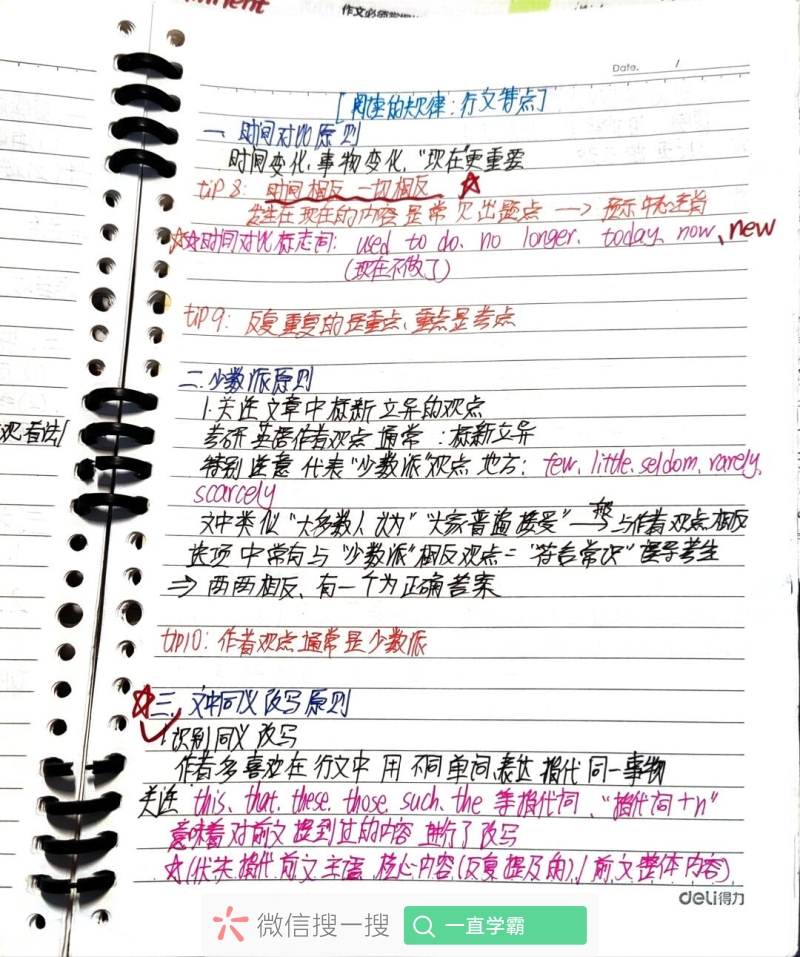 作文必备
Date. /
[阅读的规律:行文特点]
一、时间对比原则
时间变化,事物变化,"现在"更重要
tip 8: 时间相反 一切相反 ☆
发生在现在的内容是常见出题点 —> 预示中心主旨
☆☆时间对比标志词: used to do、no longer、today、now、new
(现在不做了)
tip 9: 反复重复的是重点,重点是考点
二.少数派原则
1.关注文章中标新立异的观点
考研英语作者观点通常:标新立异
特别注意 代表"少数派"观点地方: few、little、seldom、rarely、
scarcely
文中类似"大多数人认为""大家普遍接受"—> 与作者观点相反
选项中常有与"少数派"相反观点="符合常识"误导考生
=> 两两相反、有一个为正确答案
tip10: 作者观点通常是少数派
☆三、文中同义改写原则
1.识别同义改写
作者多喜欢在行文中用不同单词、表达指代同一事物
观看法/
关注 this、that、these、those、such、the 等指代词、"指代词+n"
意味着对前文提到过的内容进行了改写
☆(优先指代前文主语、核心内容(反复提及的)/前文整体内容)
deli得力
微信搜一搜
一直学霸